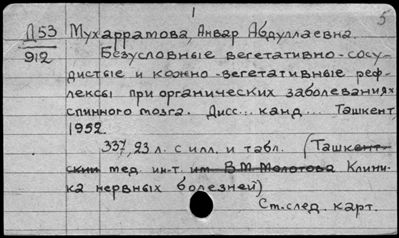 1
5
Д53 Мухарратова, Анвар Абдуллаевна.
912 Безусловные вегетативно-сосу-
дистые и кожно-вегетативные реф-
лексы при органических заболеваниях
спинного мозга. Дисс... канд... Ташкент,
1952.
337, 23 л. с илл. и табл. (Ташкент-
ский мед. ин-т. им В.М. Молотова Клини-
ка нервных болезней)
Ст. след. карт.